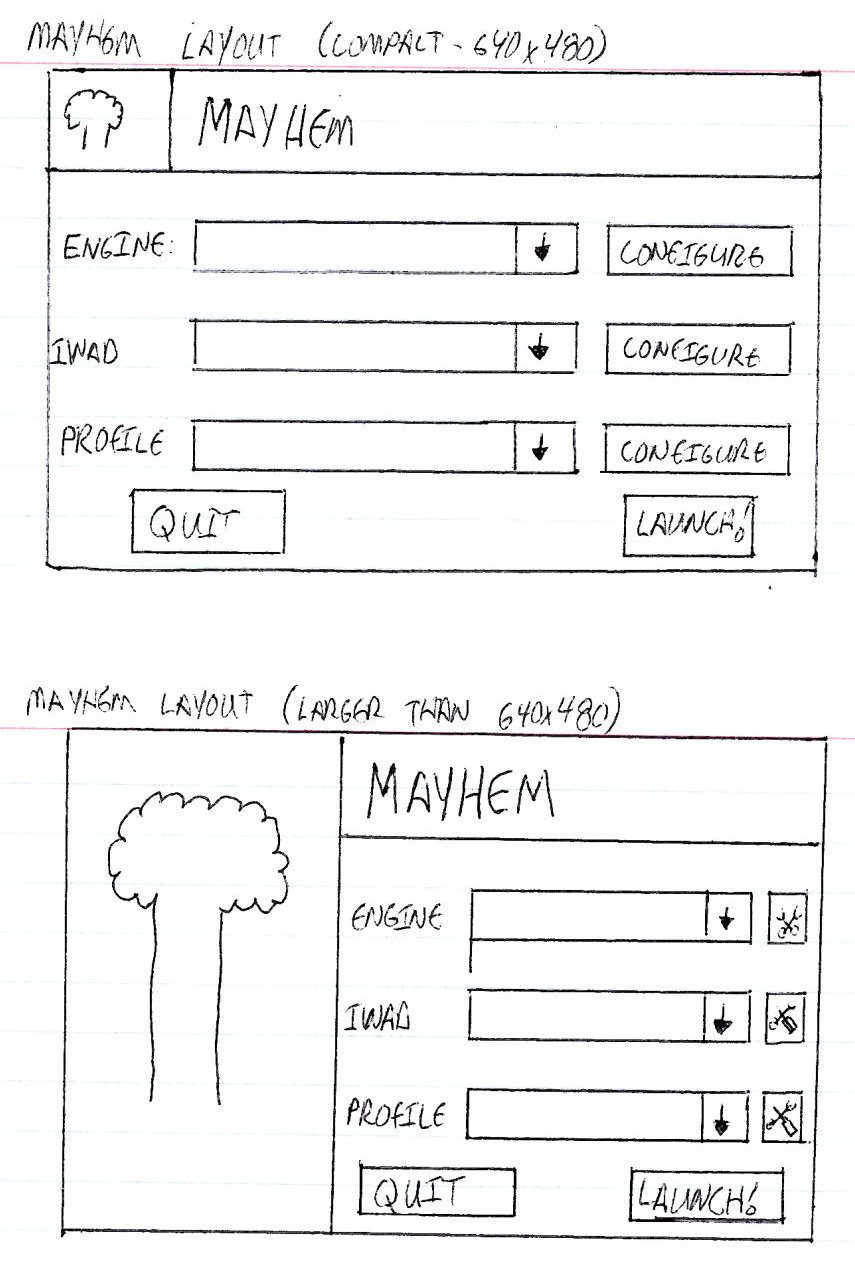 MAYHEM LAYOUT (COMPACT - 640x480)
MAYHEM
ENGINE: CONFIGURE
IWAD CONFIGURE
PROFILE CONFIGURE
QUIT LAUNCH!
MAYHEM LAYOUT (LARGER THAN 640x480)
MAYHEM
ENGINE
IWAD
PROFILE
QUIT LAUNCH!